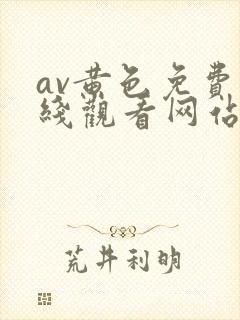 av黄色免費
綫觀看网佔
荒井利明